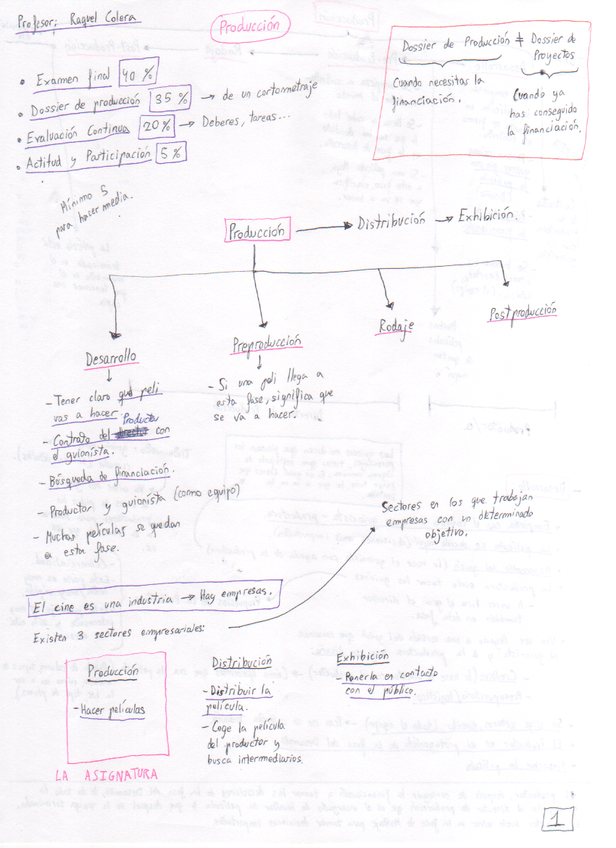 Profesor: Raquel Colera
Producción
Dossier de Producción ≠ Dossier de Proyectos
Cuando necesitas la
financiación.
Cuando ya
has conseguido
la financiación.
• Examen final 40 %
• Dossier de producción 35 % → de un cortometraje
• Evaluación Continua 20 % → Deberes, tareas...
• Actitud y Participación 5 %
Mínimo 5
para hacer media.
Producción → Distribución → Exhibición.
Desarrollo
Preproducción
Rodaje
Postproducción
- Tener claro qué peli
vas a hacer
- Contrato del Productor con
el guionista.
- Búsqueda de financiación.
- Productor y guionista (como equipo)
- Muchas películas se quedan
en esta fase.
- Si una peli llega a
esta fase, significa que
se va a hacer.
Sectores en los que trabajan
empresas con un determinado
objetivo.
El cine es una industria → Hay empresas.
Existen 3 sectores empresariales:
Producción
- Hacer películas
LA ASIGNATURA
Distribución
- Distribuir la
película.
- Coge la película
del productor y
busca intermediarios.
Exhibición
- Ponerla en contacto
con el público.
1